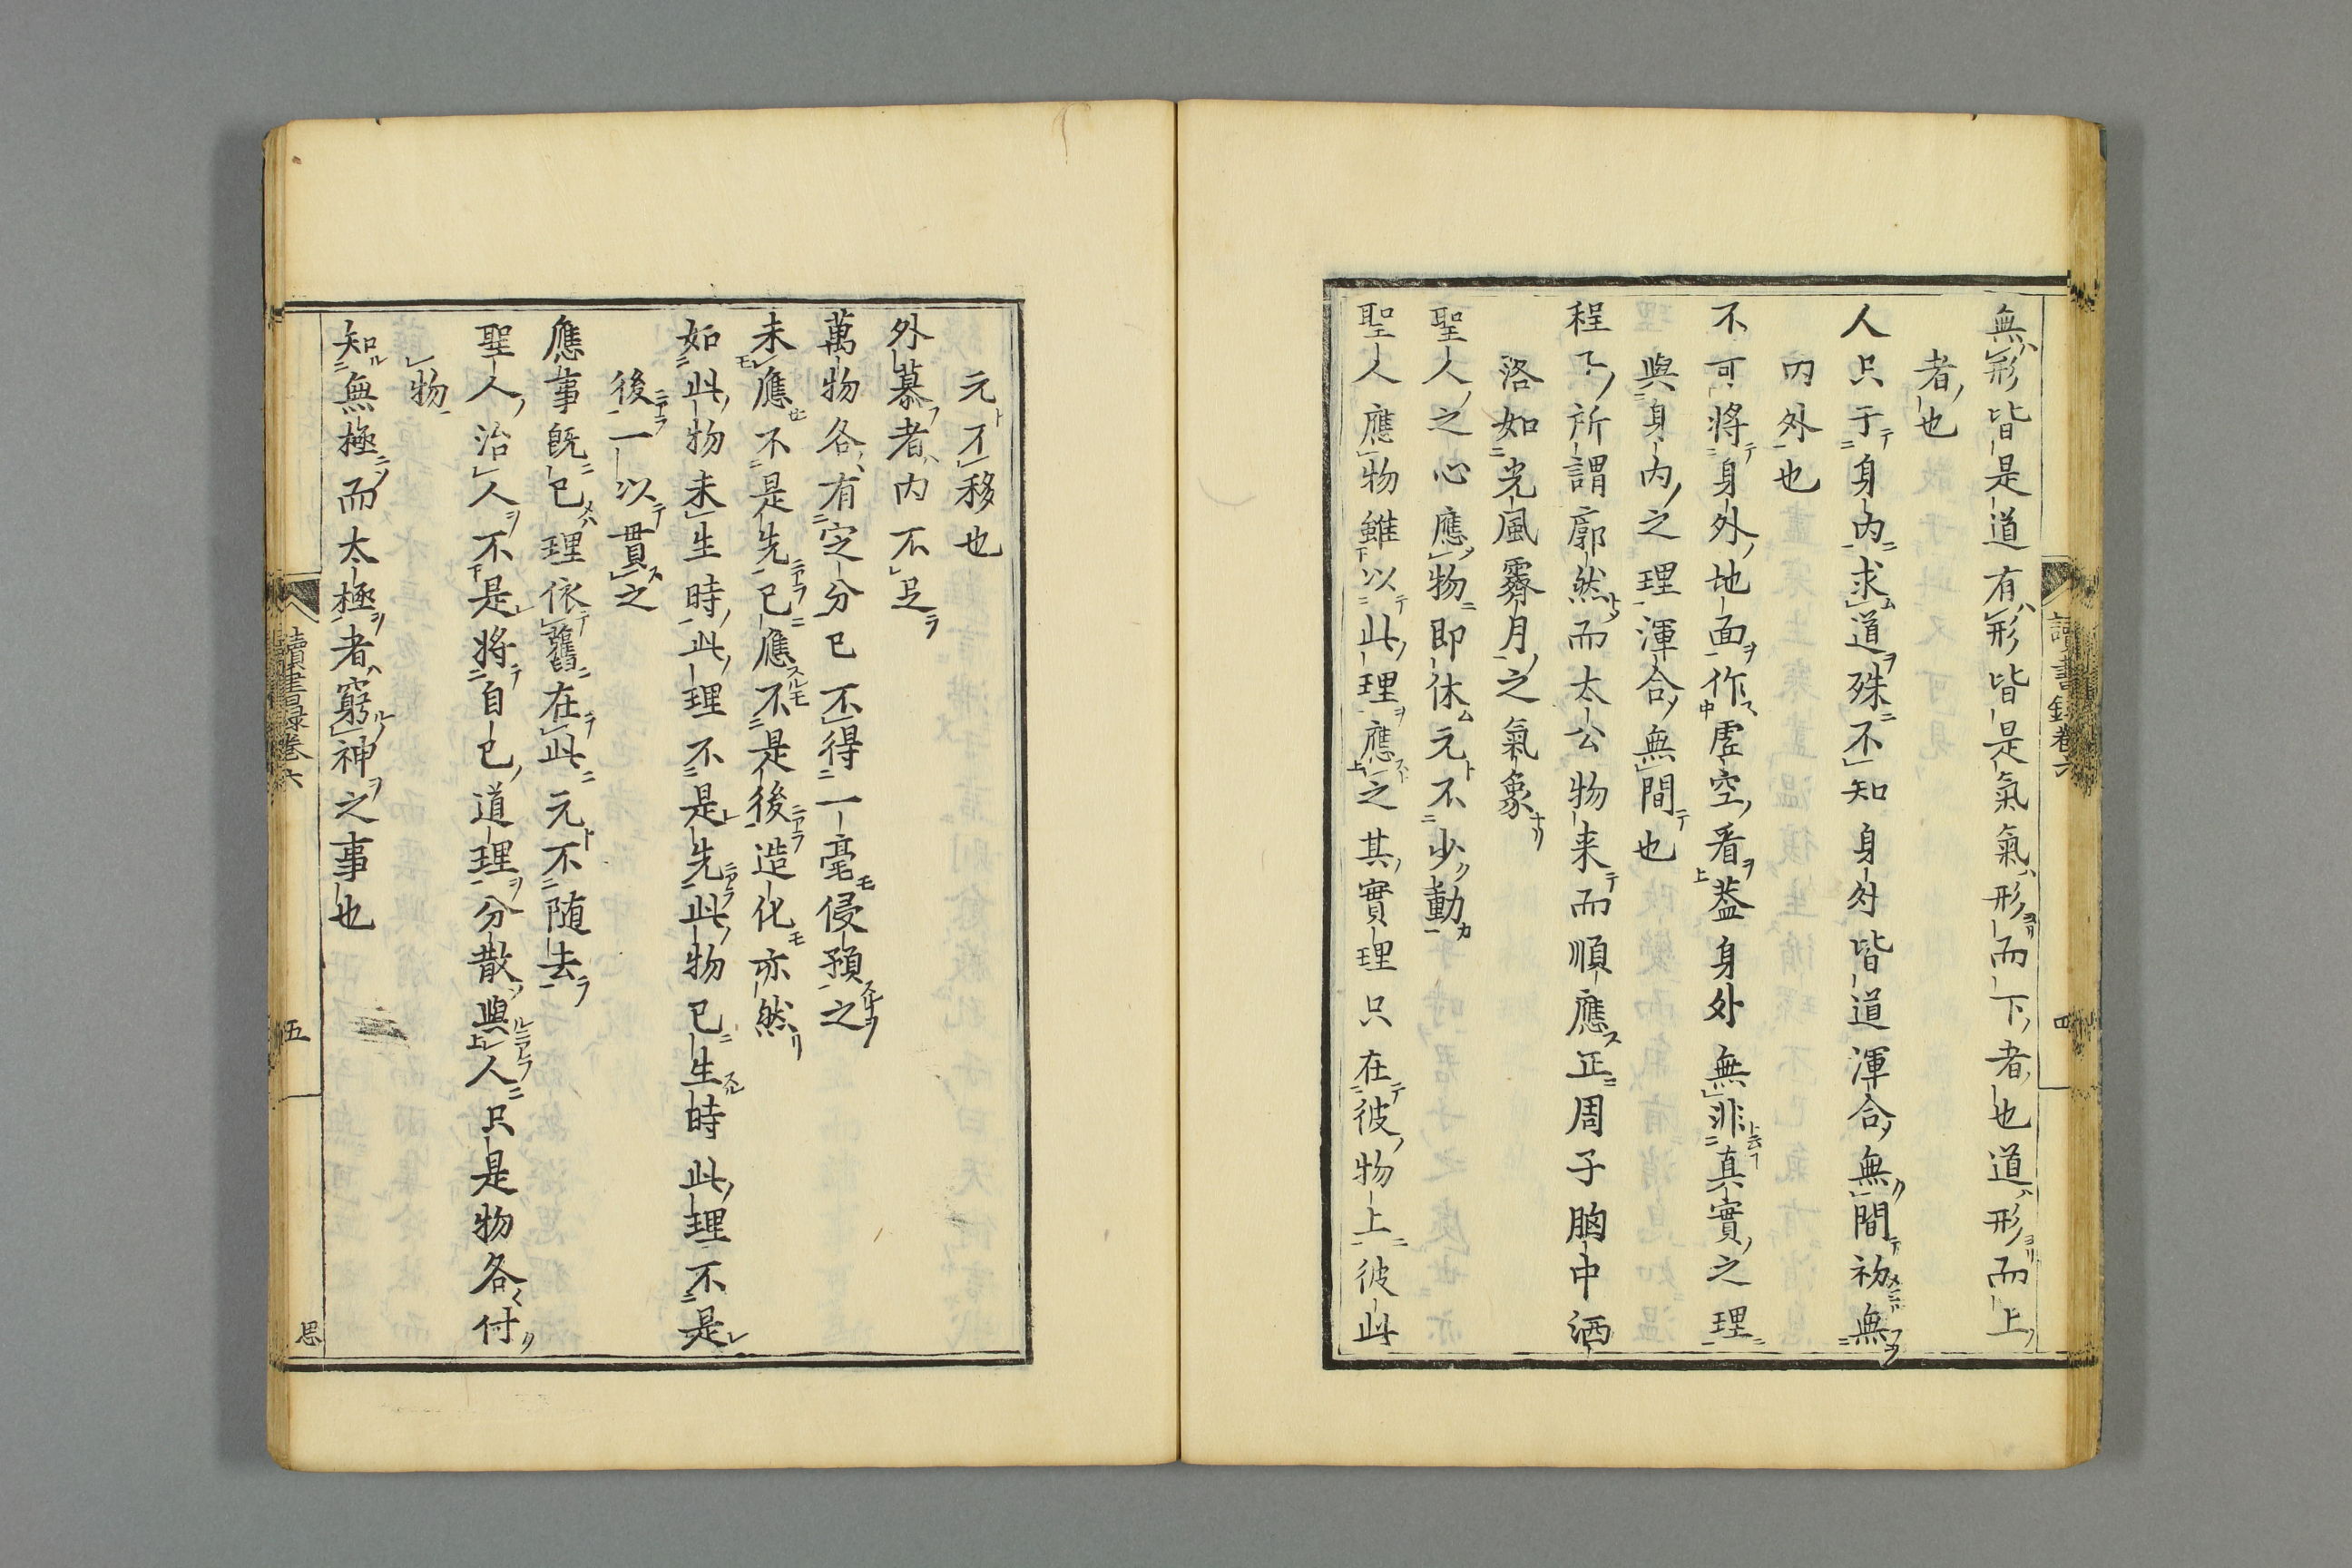 無形皆是道有形皆是氣氣形而下者也道形而上
者也
人只于身内求道殊不知身外皆道渾合無間初無
内外也
不可將身外地面作虚空看蓋身外無非真實之理
與身内之理渾合無間也
程子所謂廓然而太公物来而順應正周子胸中洒
洛如光風霽月之氣象
聖人之心應物即休元不少動
聖人應物雖以此理應之其實理只在彼物上彼此
元不移也
外慕者内不足
萬物各有定分已不得一毫侵預之
未應不是先已應不是後造化亦然
如此物未生時此理不是先此物已生時此理不是
後一以貫之
應事既已理依舊在此元不随去
聖人治人不是將自已道理分散與人只是物各付
物
知無極而太極者窮神之事也
讀書録卷六
四
讀書録卷六
五
思